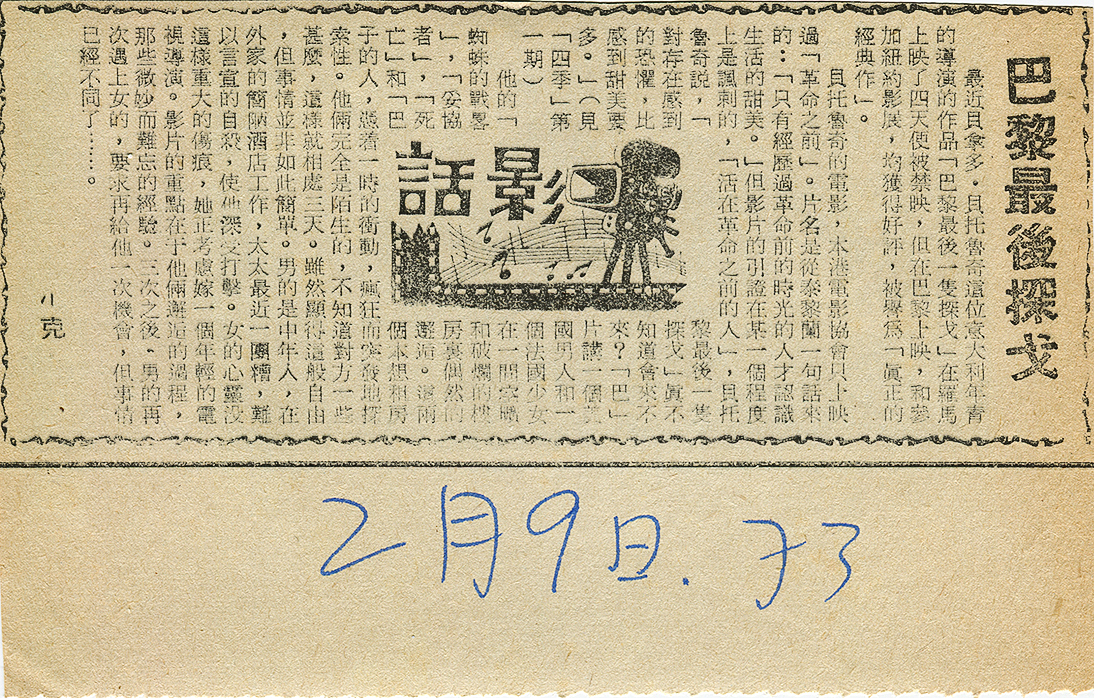 巴黎最後探戈
最近貝拿多．貝托魯奇這位意大利年青
的導演的作品「巴黎最後一隻探戈」在羅馬
上映了四天便被禁映，但在巴黎上映，和參
加紐約影展，均獲得好評，被譽爲「眞正的
經典作」。
貝托魯奇的電影，本港電影協會只上映
過「革命之前」。片名是從泰黎蘭一句話來
的：「只有經歷過革命前的時光的人才認識
生活的甜美。」但影片的引證在某一個程度
上是諷刺的，「活在革命之前的人」，貝托
魯奇說，「
對存在感到
的恐懼，比
感到甜美要
多。」（見
「四季」第
一期）
他的「
蜘蛛的戰畧
」，「妥協
者」，「死
亡」和「巴
影話
黎最後一隻
探戈」眞不
知道會來不
來？「巴」
片講一個美
國男人和一
個法國少女
在一間空曠
和破爛的樓
房裏偶然的
邂逅。這兩
個本想租房
子的人，憑着一時的衝動，瘋狂而突發地探
索性。他倆完全是陌生的，不知道對方一些
甚麼，這樣就相處三天。雖然顯得這般自由
，但事情並非如此簡單。男的是中年人，在
外家的簡陋酒店工作，太太最近一團糟，難
以言宣的自殺，使他深受打擊。女的心靈沒
這樣重大的傷痕，她正考慮嫁一個年輕的電
視導演。影片的重點在于他倆邂逅的過程，
那些微妙而難忘的經驗。三次之後，男的再
次遇上女的，要求再給他一次機會，但事情
已經不同了……。
小克
2月9日. 73